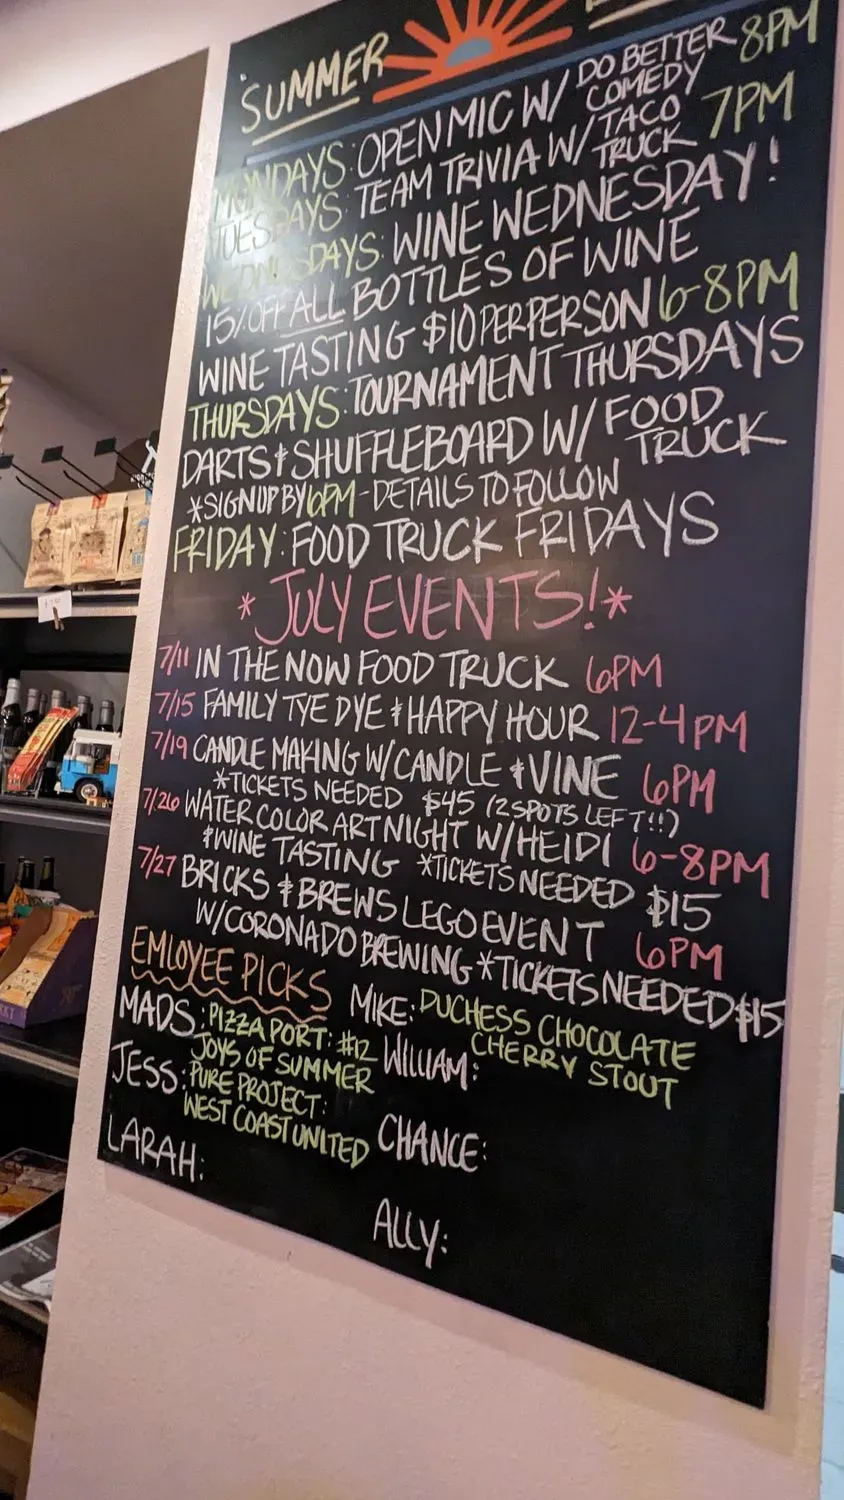 SUMMER
MONDAYS: OPEN MIC W/ DO BETTER COMEDY 8PM
TUESDAYS: TEAM TRIVIA W/ TACO TRUCK 7PM
WEDNESDAYS: WINE WEDNESDAY!
15% OFF ALL BOTTLES OF WINE
WINE TASTING $10 PER PERSON 6-8PM
THURSDAYS: TOURNAMENT THURSDAYS
DARTS & SHUFFLEBOARD W/ FOOD TRUCK
*SIGN UP BY 6PM - DETAILS TO FOLLOW
FRIDAY: FOOD TRUCK FRIDAYS
*JULY EVENTS!*
7/11 IN THE NOW FOOD TRUCK 6PM
7/15 FAMILY TYE DYE & HAPPY HOUR 12-4PM
7/19 CANDLE MAKING W/ CANDLE & VINE 6PM
*TICKETS NEEDED $45 (2 SPOTS LEFT!!)
7/26 WATER COLOR ART NIGHT W/ HEIDI 6-8PM
& WINE TASTING *TICKETS NEEDED $15
7/27 BRICKS & BREWS LEGO EVENT 6PM
W/ CORONADO BREWING *TICKETS NEEDED $15
EMLOYEE PICKS
MADS: PIZZA PORT: #12
JOYS OF SUMMER
JESS: PURE PROJECT:
WEST COAST UNITED
LARAH:
MIKE: DUCHESS CHOCOLATE
CHERRY STOUT
WILLIAM:
CHANCE:
ALLY: